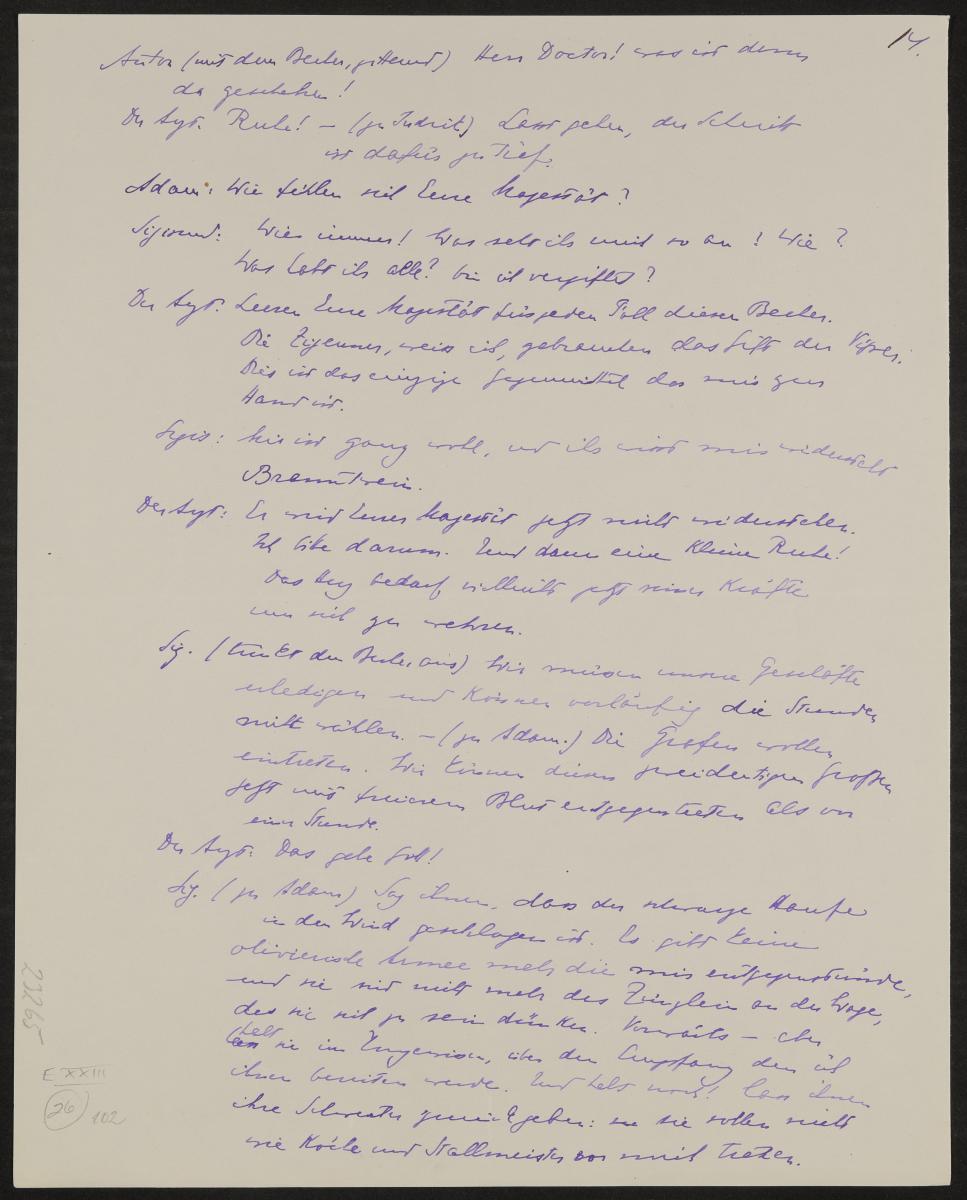 14.
Anton (mit dem Becher, zitternd) Herr Doctor! was ist denn
da geschehen!
Der Arzt. Ruhe! – (zu Judrit) Lasst gehen, der Schnitt
ist dafür zu tief.
Adam: Wie fühlen sich Eure Majestät?
Sigismund: Wie immer! Was seht ihr mich so an! Wie?
Was habt ihr alle? bin ich vergiftet?
Der Arzt: Leeren Eure Majestät für jeden Fall diesen Becher.
Die Zigeuner, weiss ich, gebrauchen das Gift der Viper.
Dies ist das einzige Gegenmittel das mir zur
Hand ist.
Sigis: Mir ist ganz wohl, und ihr wisst mir widersteht
Branntwein.
Der Arzt: Er wird Eurer Majestät jetzt nicht widerstehen.
Ich bitte darum. Und dann eine kleine Ruhe!
Das Herz bedarf vielleicht jetzt seiner Kräfte
um sich zu wehren.
Sig. (trinkt den Becher aus) Wir müssen unsere Geschäfte
erledigen und können vorläufig die Stunden
nicht wählen. – (zu Adam.) Die Grafen wollen
eintreten. Wir können diesen zweideutigen Grossen
jetzt mit freierem Blut entgegentreten als vor
einer Stunde.
Der Arzt: Das gebe Gott!
Sig. (zu Adam) Sag ihnen, dass der schwarze Haufe
in den Wind geschlagen ist. Es gibt keine
olivierische Armee mehr die mir entgegenstünde,
und sie sind nicht mehr das Zünglein an der Wage,
das sie sich zu sein dünken. Vorwärts – aber
halt sie im Ungewissen, über den Empfang den ich
ihnen bereiten werde. Und halt noch! lass ihnen
ihre Schwerter zurückgeben: sie sollen nicht
wie Köche und Stallmeister vor mich treten.
23265
E XXIII
26
102